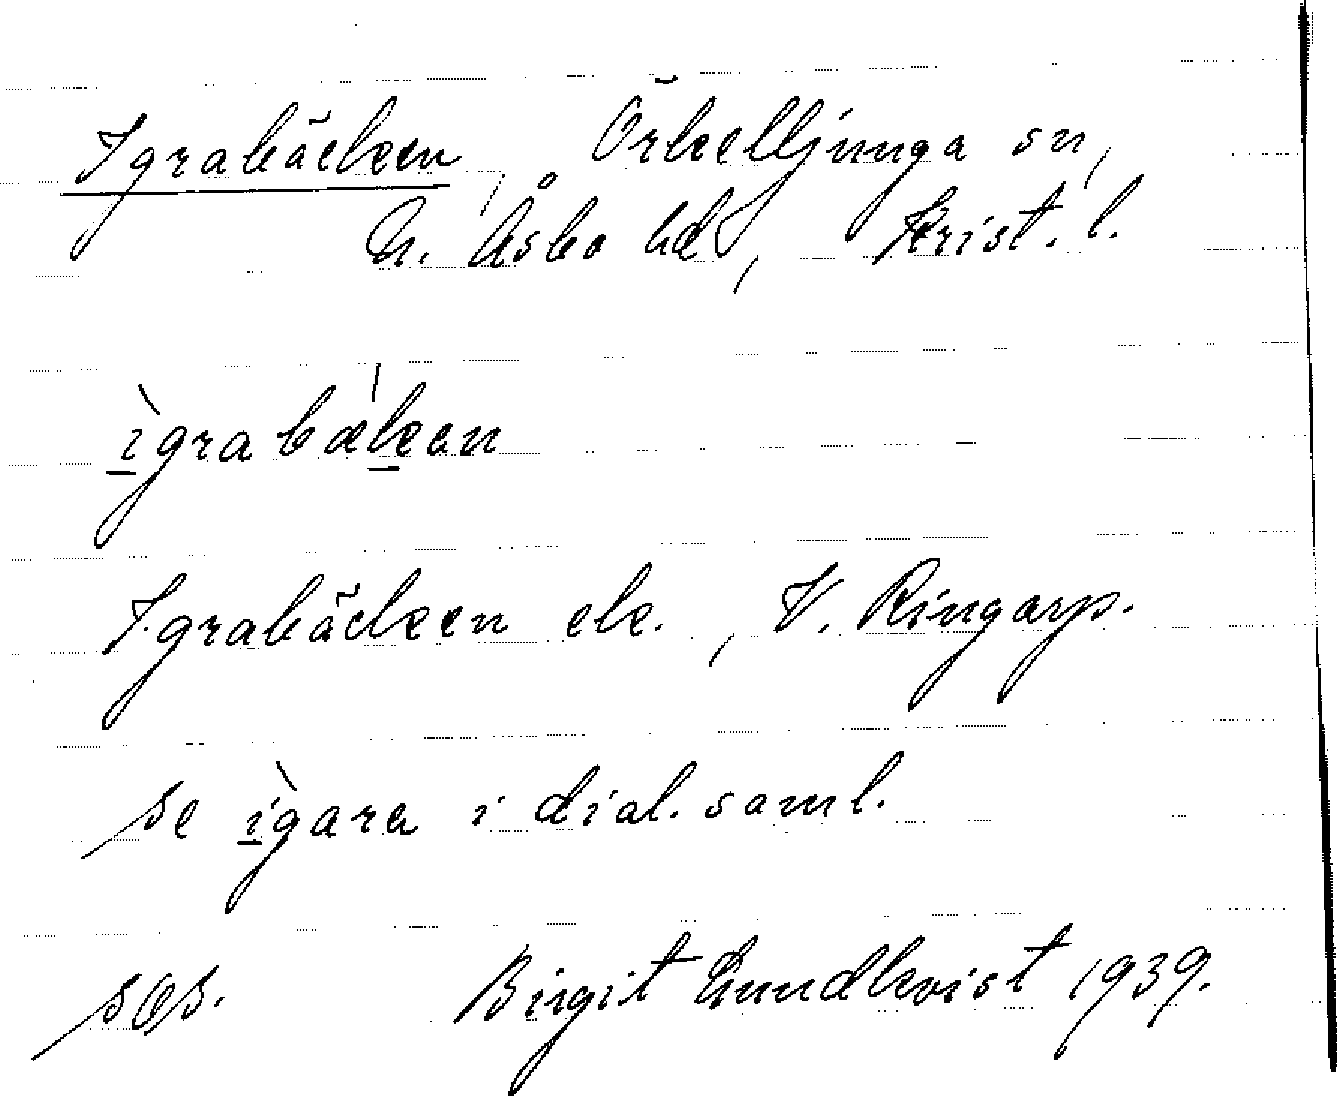 Igrabäcken, Örkelljunga sn,
N. Åsbo hd, Krist. l.
ìgrabækan
Igrabäcken ek., V. Ringarp.
se ìgara i dial. saml.
Birgit Lundkvist 1939.